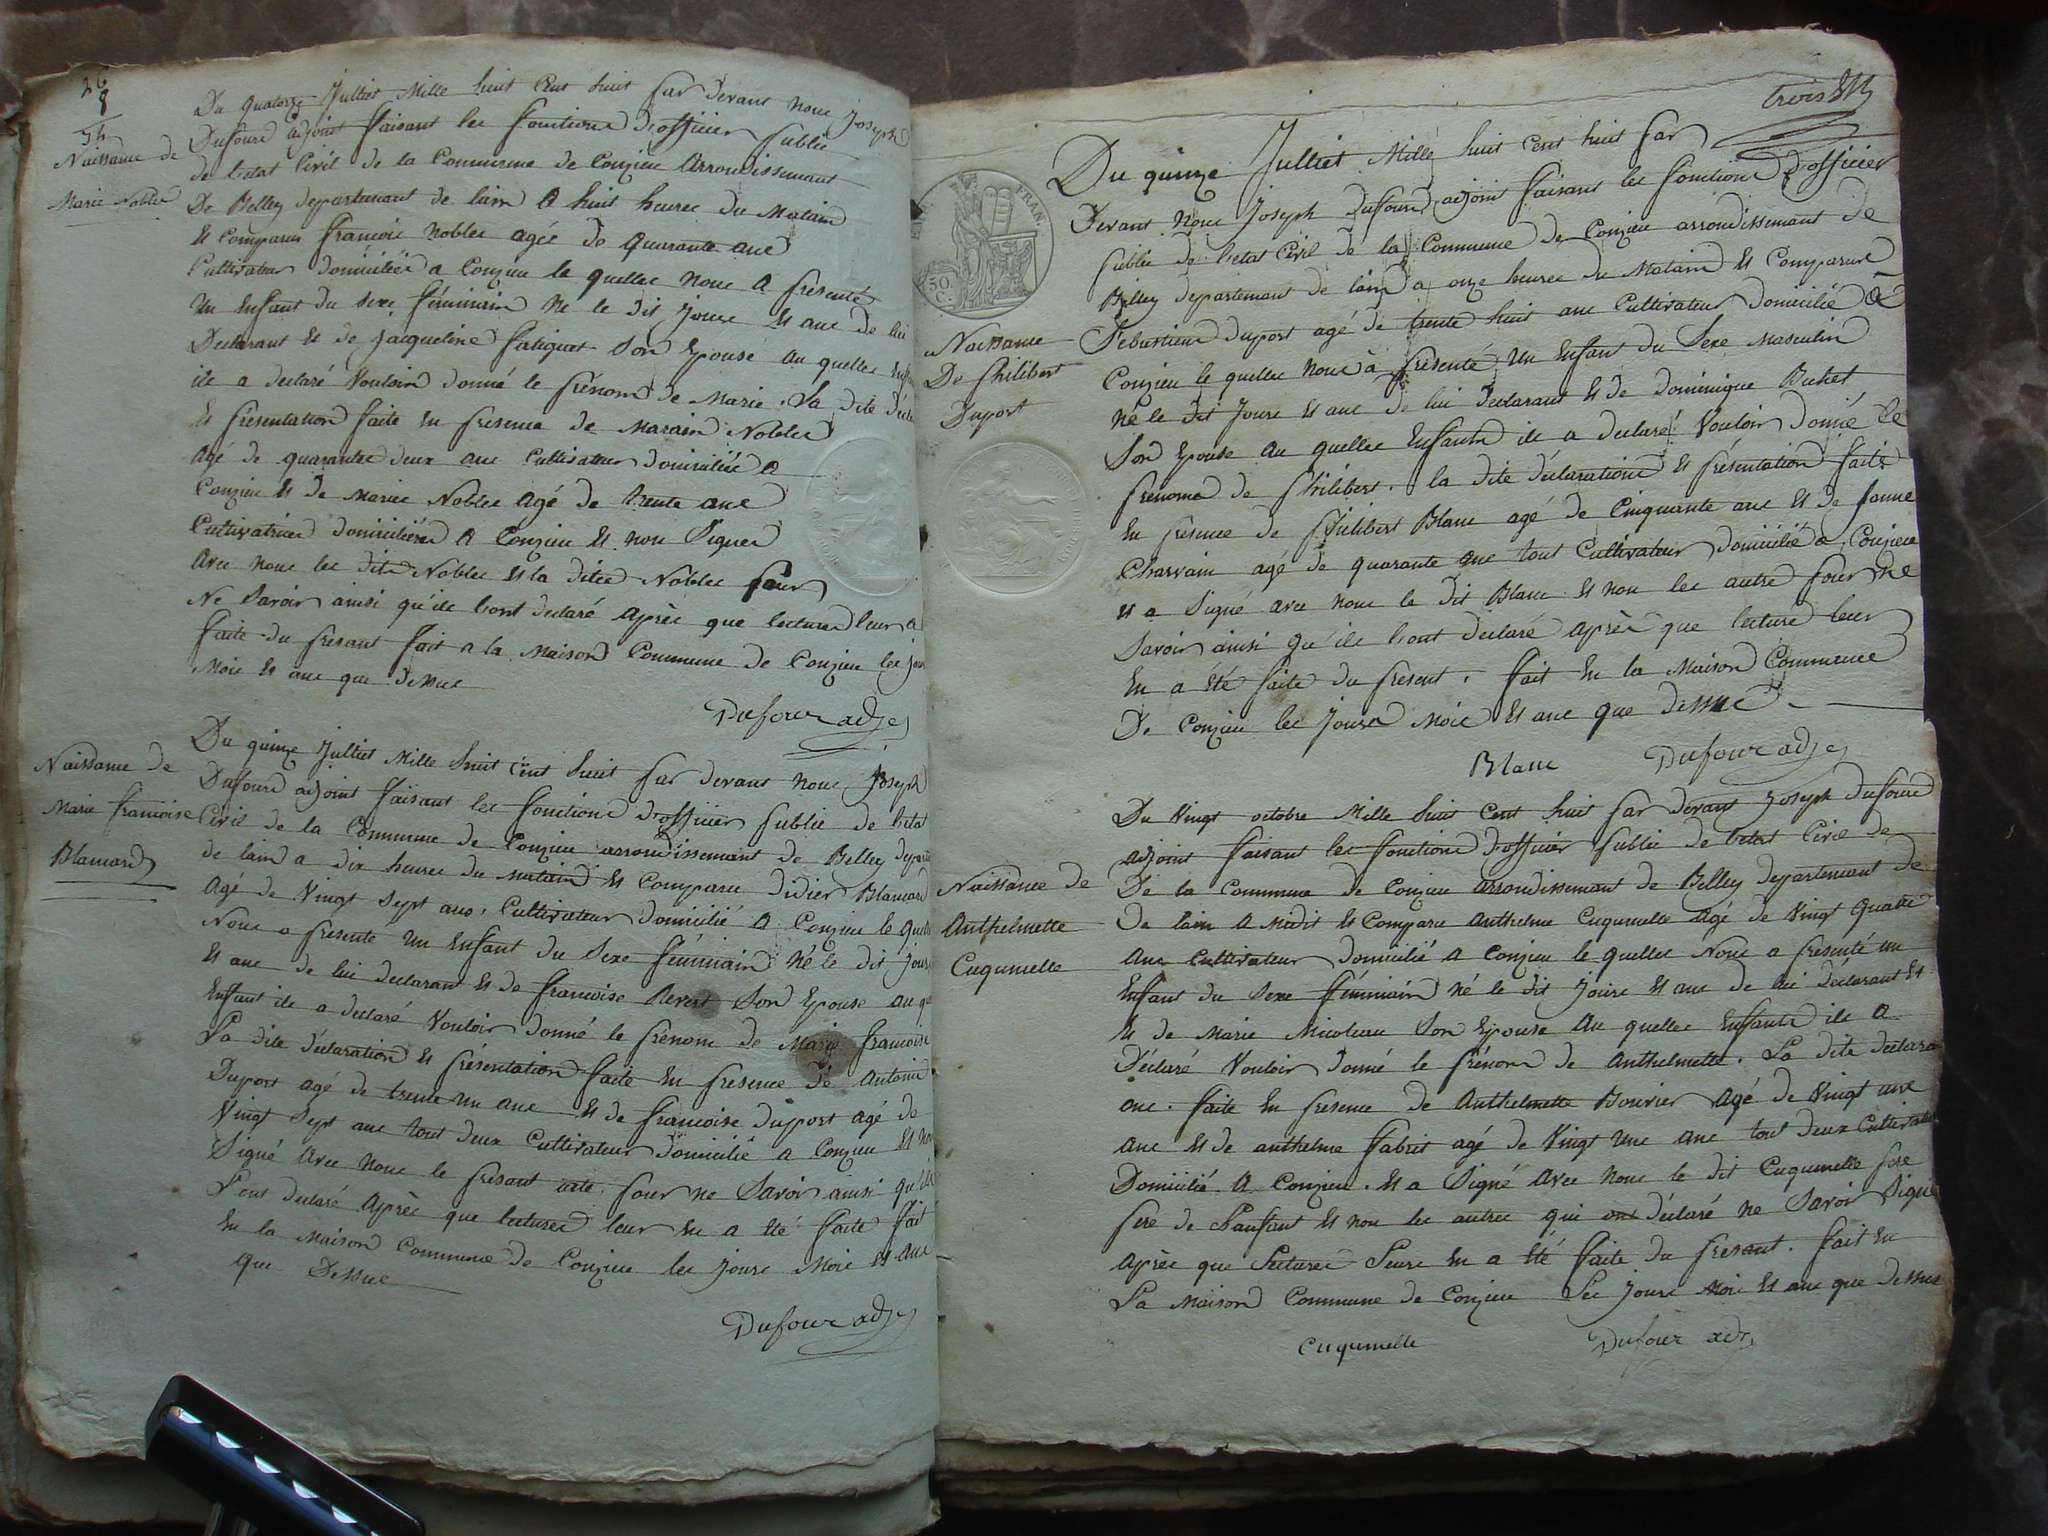 26
8
34
Naissance de
Marie Noblee
Du quatorze Julliet Mille huit cent huit par devant nous Joseph
Dufourd adjoint faisant les fonctions d'officier public
de L'etat Civil de la Commune de Conzieu arrondissement
De Belley departement de lain a huit heures du Matain
Et comparus francois Noblee agée de quarante ans
Cultivateur domiciliée a Conzieu le quelles nous a présenté
un Enfant du sexe féminain né le dit jours Et ans de lui
Declarant Et de Jacqueline fatiguet Son Epouse au quelles Enfan
ile a declaré Vouloir donné le prénom de Marie. La dite Décla
Et présentation faite En presence de Marain Noblee
Agé de quarantes deux ans Cultivateur domiciliée a
Conzieu Et de Mariee Noblee agé de trente ans
Cultivatrice domiciliée a Conzieu Et non Signer
Avec nous les dits Noblee Et la ditee Noblee pour
Ne Savoir ainsi qu'ils l'ont declaré Après que lecturee leur a
faite du presant fait a la Maison Commune de Conzieu les jour
Mois Et ans que dessus
Dufour adj
Naissance de
Marie francoise
Blancard
Du quinze Julliet Mille huit cent huit par devant nous Joseph
Dufourd adjoint faisant les fonctions d'officier public de L'etat
Civil de la Commune de Conzieu arrondissement de Belley departe
de lain a dix heures du matain Et Comparu Didier Blancard
Agé de Vingt Sept ans, Cultivateur domicilié a Conzieu le quelle
Nous a presenté un Enfant du Sexe féminain né le dit jours
Et ans de lui declarant Et de francoise Revert Son Epouse au que
Enfant ile a declaré Vouloir donné le prénom de Marie francoise
La dite déclaration Et présentation faite En presence de Antoine
Duport agé de trente un ans Et de francoise duport agé de
Vingt Sept ans tout deux Cultivateur domicilié a Conzieu Et non
Signé Avec nous le présant acte, pour ne Savoir ainsi qu'ils
L'ont declaré Après que lecturee leur En a été faite fait
En la Maison Commune de Conzieu les jours Mois Et ans
que Dessus
Dufour adj
trois
FRAN.
50.
C.
Naissance
De Philibert
Duport
Du quinze Julliet Mille huit cent huit par
Devant nous Joseph Dufourd adjoint faisant les fonctions d'officier
public de L'etat Civil de la Commune de Conzieu arrondissement de
Belley departement de lain a onze heures du Matain Et Comparus
Sebastiens duport agé de trente huit ans Cultivateur domicilié à
Conzieu le quelles nous à présenté un Enfant du Sexe Masculin
né le dit jours Et ans de lui declarant Et de dominique Buhet
Son Epouse au quelles Enfants ile a declaré Vouloir donné le
prenoms de Philibert. la dite déclarations Et présentation faite
En présence de Philibert Blanc agé de Cinquante ans Et de
Charvain agé de quarante ans tout Cultivateur domicilié a Conzieu
Et a Signé avec nous le dit Blanc Et non les autre pour ne
Savoir ainsi qu'ils l'ont declaré Après que lecture leur
En a été faite du present. fait En la Maison Commune
De Conzieu les jours Mois Et ans que dessus
Blanc Dufour adj
Naissance de
Anthelmette
Cuqumelle
Du Vingt octobre Mille huit cent huit par devant Joseph dufourd
adjoint faisant les fonctions d'officier public de L'etat Civil de
De la Commune de Conzieu arrondissement de Belley departement de
De lain a Midit Et Comparu Anthelme Cuqumelle Agé de Vingt quatre
Ans Cultivateur domicilié a Conzieu le quelles Nous a présenté un
Enfant du Sexe féminain né le dit jours Et ans de lui declarant Et
Et de Marie Micoleau Son Epouse au quelles Enfants ile a
Déclaré Vouloir donné le prénom de Anthelmette. La dite declara
one. faite En presence de Anthelmette Bouvier Agé de Vingt ans
ans Et de anthelme fabret agé de Vingt une ans tout deux Cultivateur
Domicilié A Conzieu. Et a Signé avec nous le dit Cuqumelle pere
pere de L'anfant Et non les autres qui ont déclaré né Savoir Signé
Après que Lecturee Leurs En a Eté faite du presant. fait En
La Maison Commune de Conzieu Les jours Mois Et ans que dessus
Cuqumelle Dufour adj